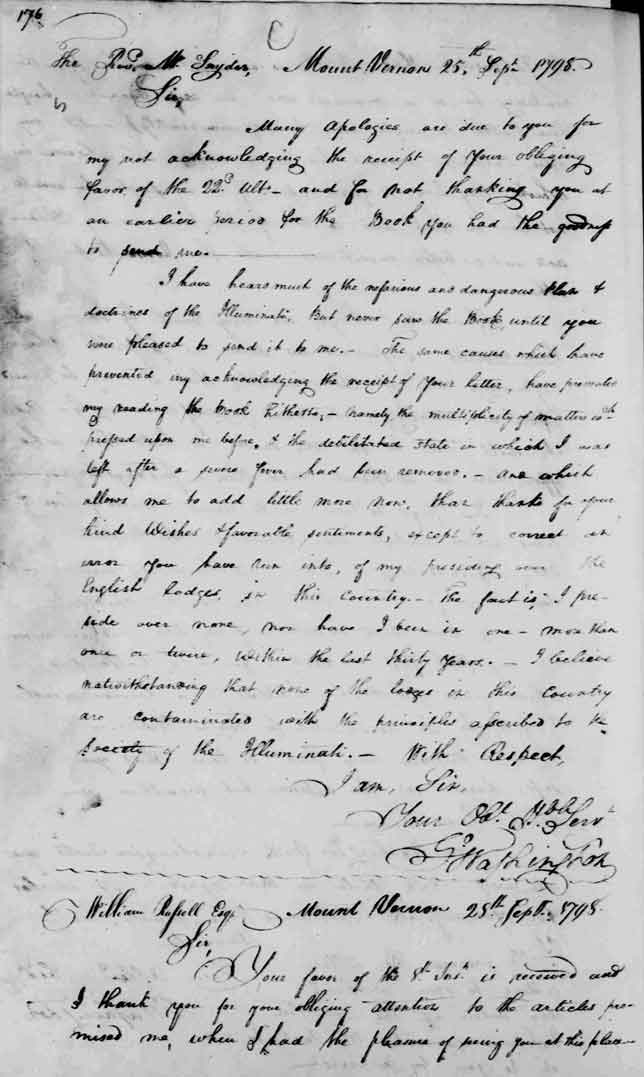 176
The Revd. Mr Snyder, Mount Vernon 25th Septr 1798.
Sir,
Many apologies are due to you for
my not acknowledging the receipt of your obliging
favor of the 22d. Ulto– and for not thanking you at
an earlier period for the Book you had the goodness
to send me.
I have heard much of the nefarious and dangerous plan &
doctrines of the Illuminati, but never saw the Book until you
were pleased to send it to me.– The same causes which have
prevented my acknowledging the receipt of your letter, have prevented
my reading the Book hitherto;– namely the multiplicity of matters wch
pressed upon me before, & the debilitated state in which I was
left after a severe fever had been removed.– and which
allows me to add little more now, than thanks for your
kind wishes & favorable sentiments, except to correct an
error you have run into, of my presiding over the
English Lodges in this Country.– The fact is, I pre-
side over none, nor have I been in one– more than
once or twice, within the last thirty years.– I believe
notwithstanding that none of the Lodges in this Country
are contaminated with the principles ascribed to the
Society of the Illuminati.– With Respect,
I am, Sir,
Your Obt. Hble Servt
Go Washington
William Russell Esqr Mount Vernon 28th Septr. 1798.
Sir,
Your favor of the 8th Inst. is received and
I thank you for your obliging attention to the articles pro-
mised me, when I had the pleasure of seeing you at this place